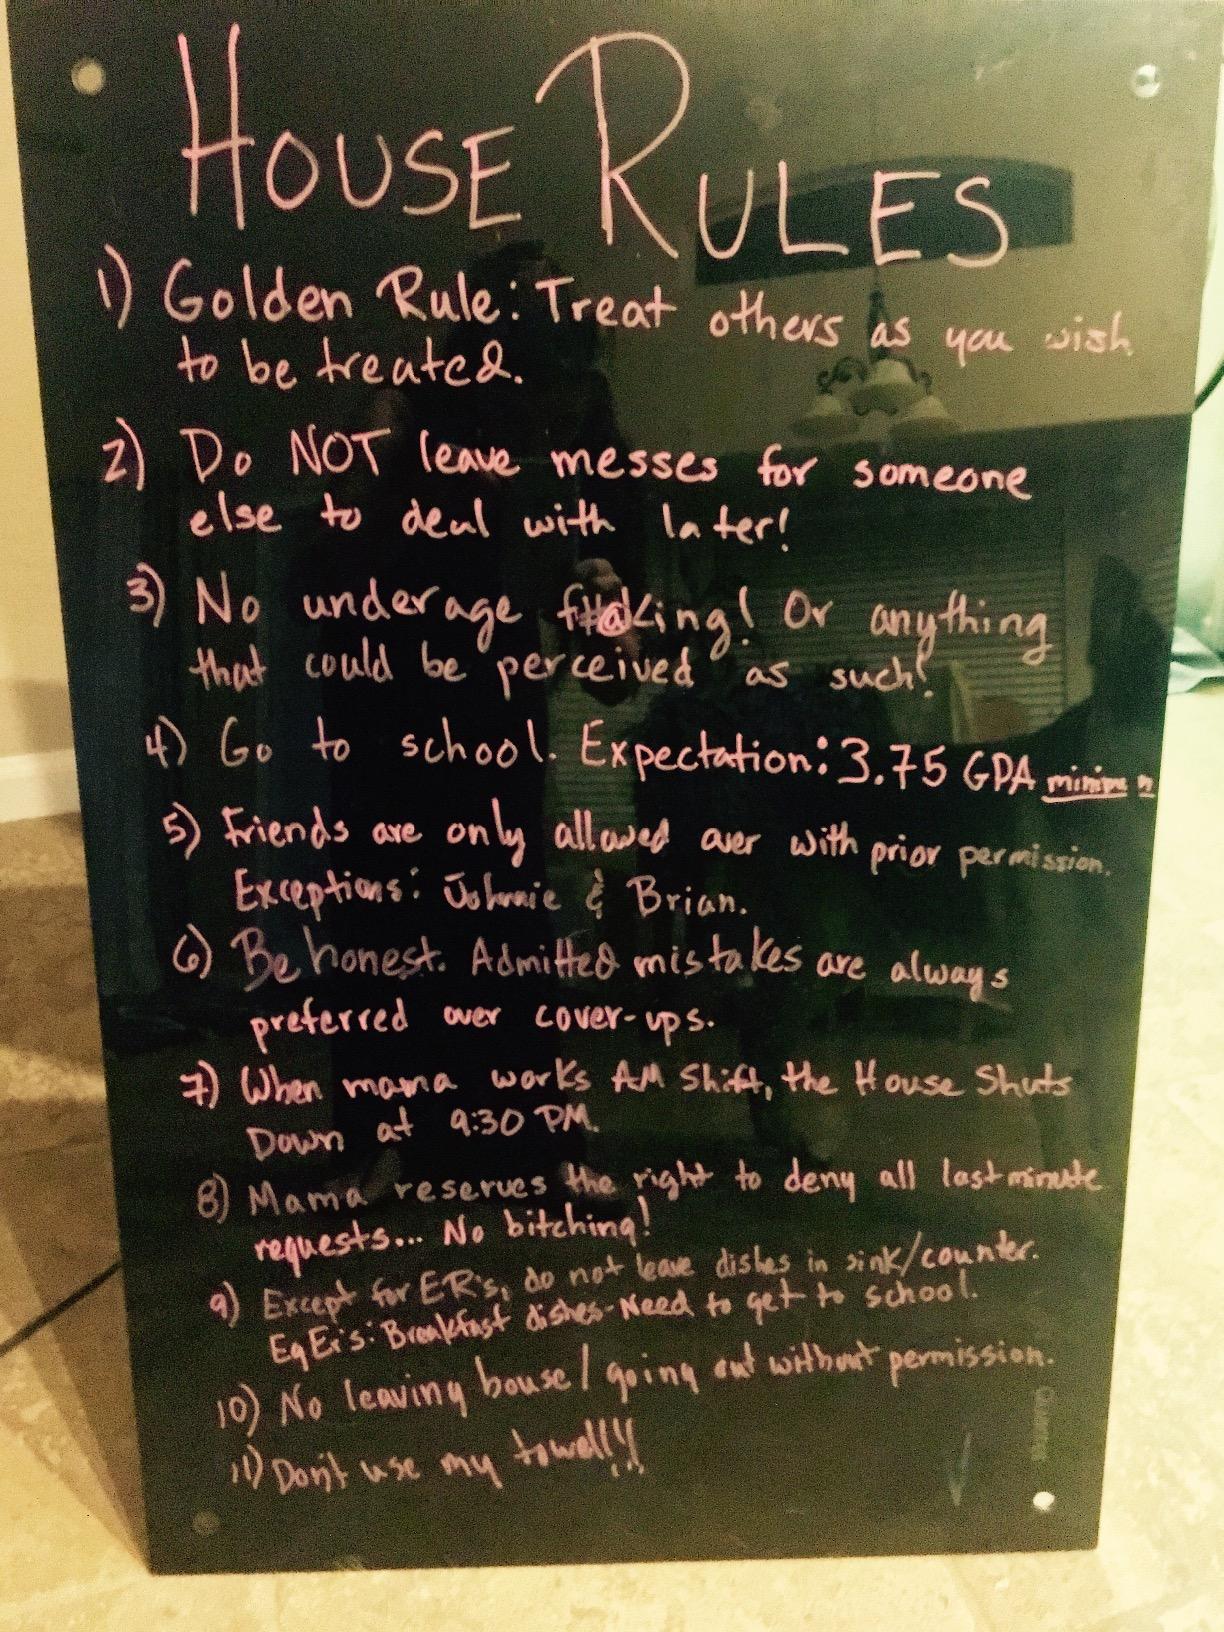 HOUSE RULES
1) Golden Rule: Treat others as you wish
to be treated.
2) Do NOT leave messes for someone
else to deal with later!
3) No underage f#@king! Or anything
that could be perceived as such!
4) Go to school. Expectation: 3.75 GPA minimum
5) Friends are only allowed over with prior permission.
Exceptions: Johnnie & Brian.
6) Be honest. Admitted mistakes are always
preferred over cover-ups.
7) When mama works AM Shift, the House Shuts
Down at 9:30 PM.
8) Mama reserves the right to deny all last minute
requests... No bitching!
9) Except for ER's, do not leave dishes in sink/counter.
Eg Er's: Breakfast dishes-Need to get to school.
10) No leaving house / going out without permission.
11) Don't use my towel!!!